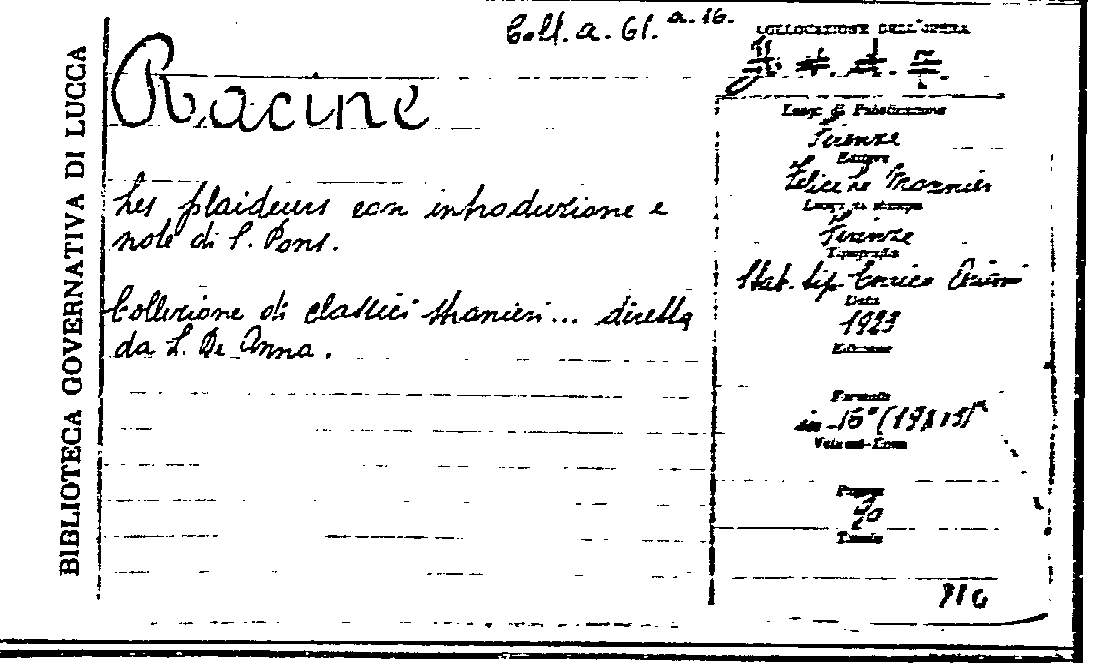 BIBLIOTECA GOVERNATIVA DI LUCCA
Coll. a. 61. a. 16.
Racine
Les plaideurs con introduzione e
note di S. Pons.
Collezione di classici stranieri... diretta
da L. De Anna.
COLLOCAZIONE DELL'OPERA
Luogo di Pubblicazione
Firenze
Editore
Felice Le Monnier
Luogo di stampa
Firenze
Tipografia
Stab. tip. Enrico Ariani
Data
1923
Edizione
Formato
in-16°
Volumi-Tomi
Pagine
Tavole